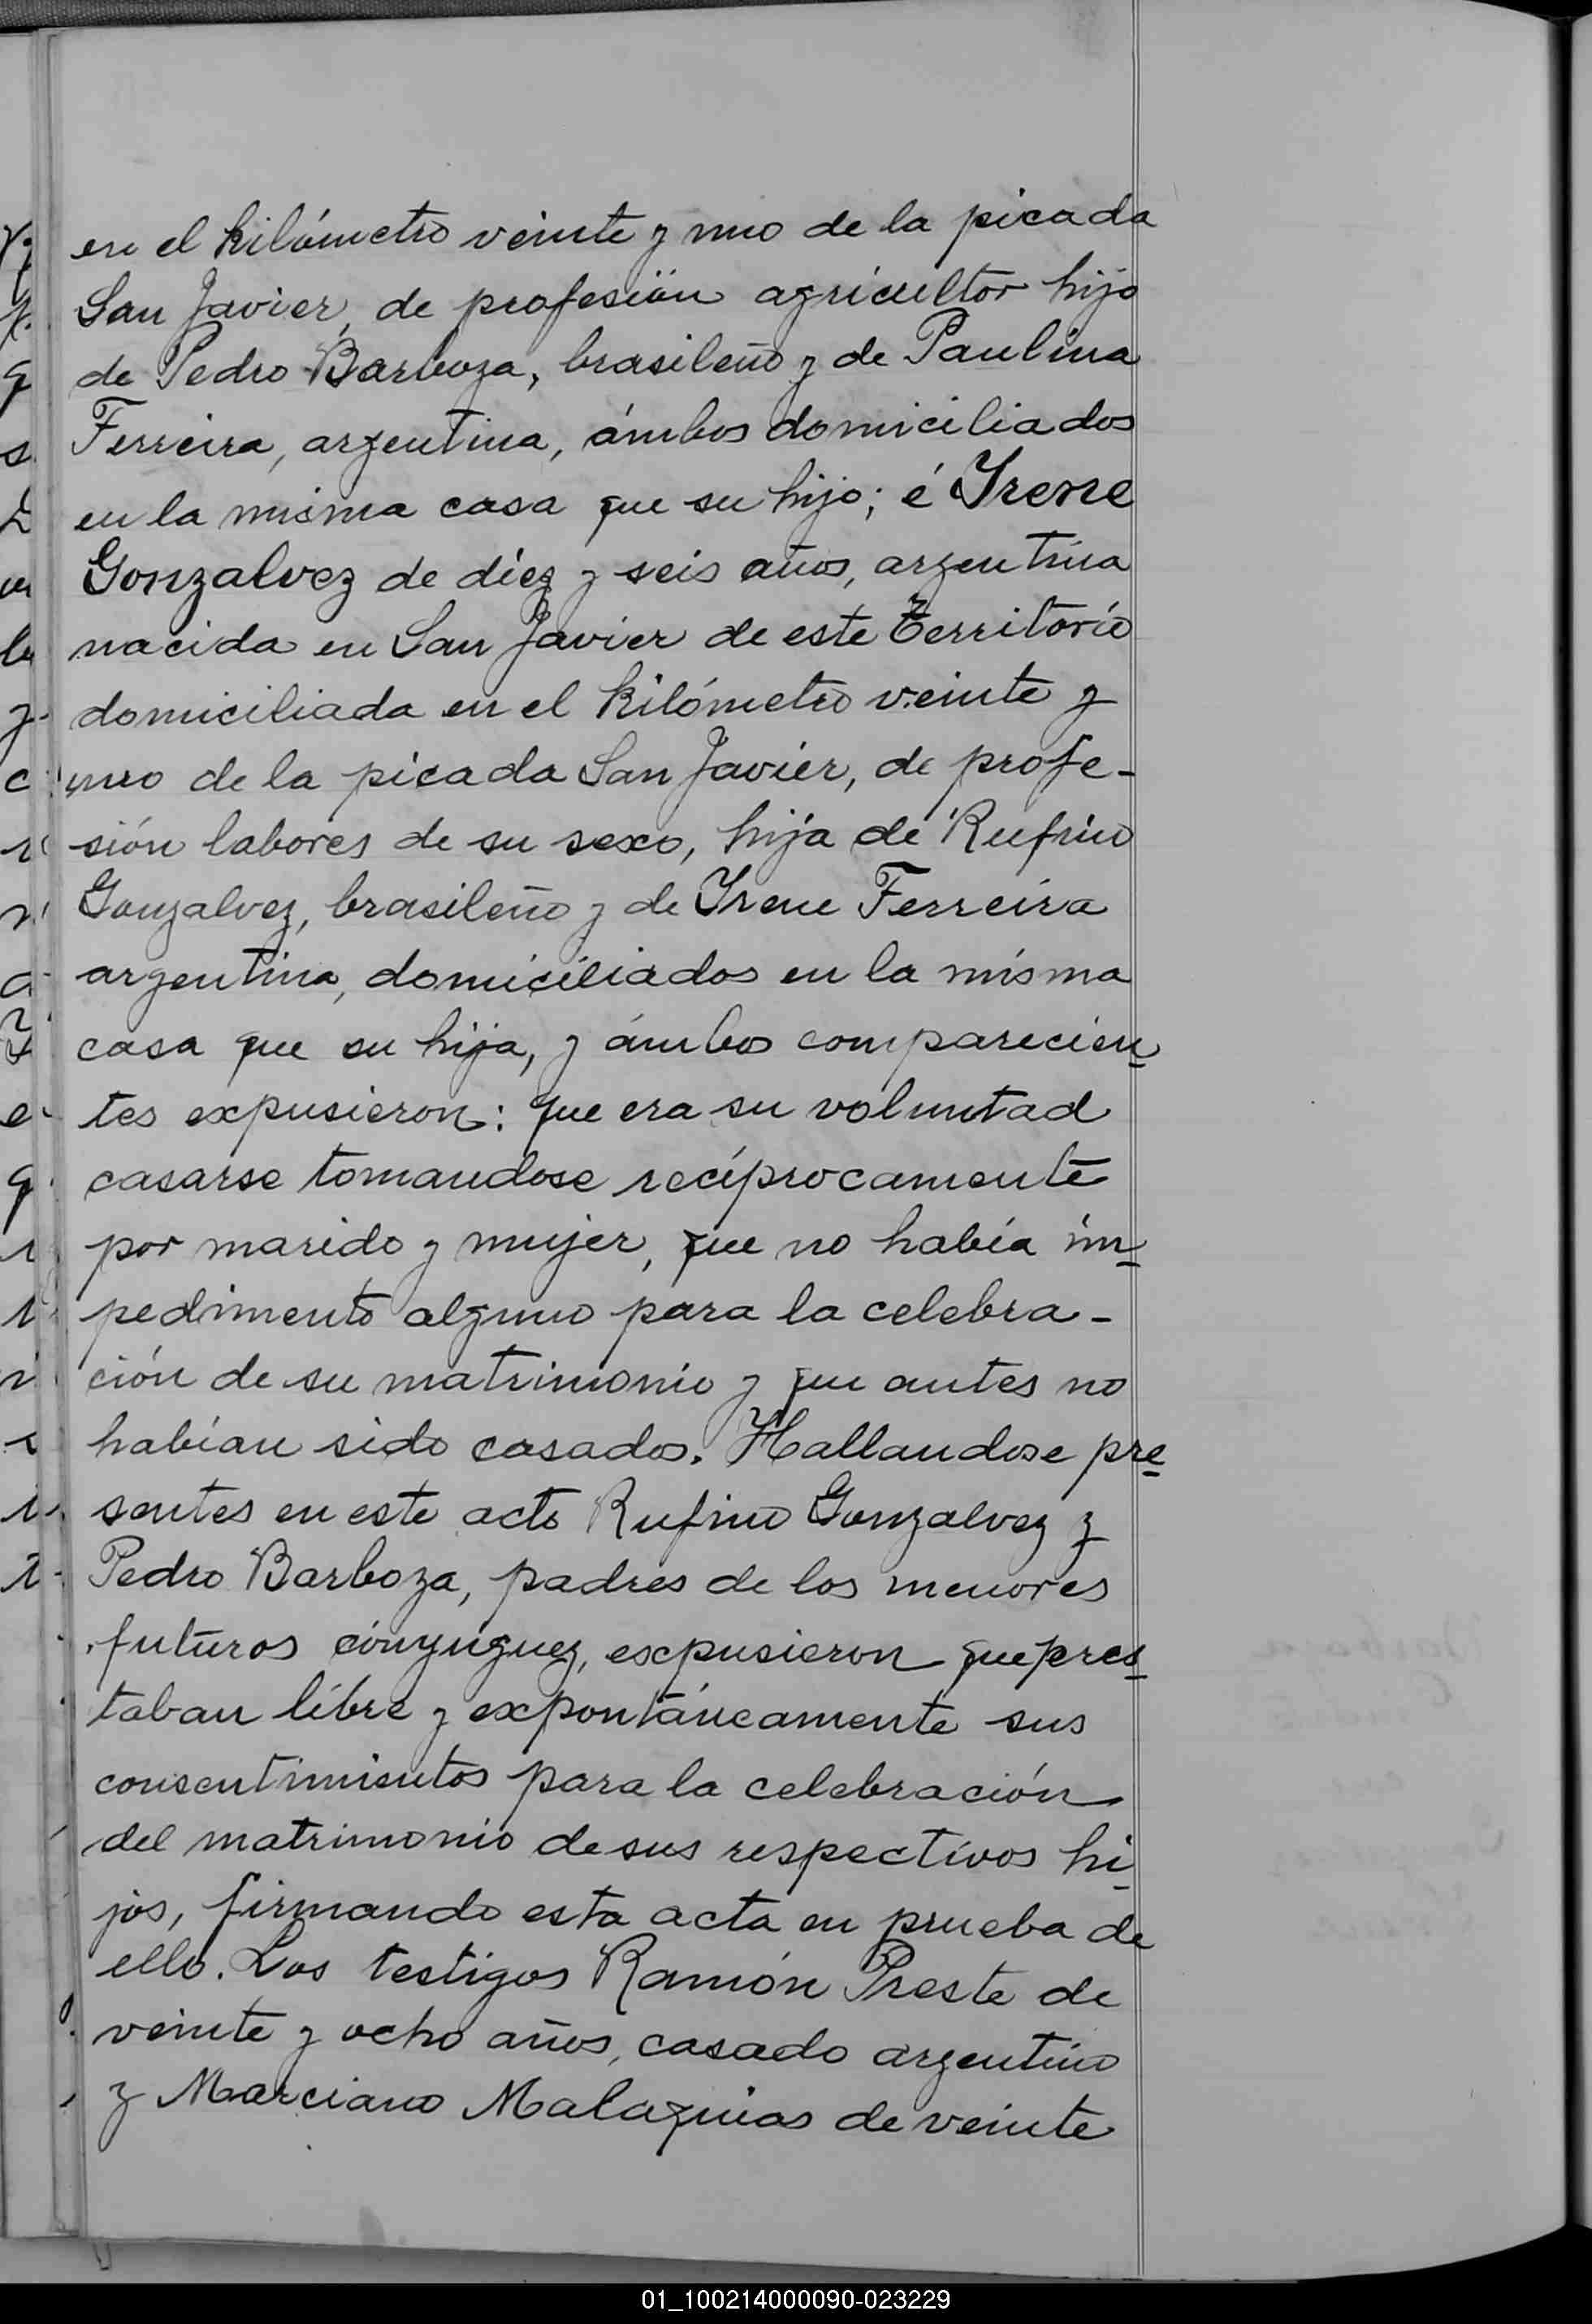 en el kilómetro veinte y uno de la picada
San Javier, de profesión agricultor hijo
de Pedro Barboza, brasileño y de Paulina
Ferreira, argentina, ámbos domiciliados
en la misma casa que su hijo; é Yrene
Gonzalvez de diez y seis años, argentina
nacida en San Javier de este Territorio
domiciliada en el kilómetro veinte y
uno de la picada San Javier, de profe-
sión labores de su sexo, hija de Rufino
Gonzalvez, brasileño y de Yrene Ferreira
argentina, domiciliados en la misma
casa que su hija, y ámbos comparecien-
tes expusieron: que era su voluntad
casarse tomandose recíprocamente
por marido y mujer, que no había im-
pedimento alguno para la celebra-
ción de su matrimonio y que antes no
habían sido casados. Hallandose pre-
sentes en este acto Rufino Gonzalvez y
Pedro Barboza, padres de los menores
futuros cónyuguez, expusieron que pres-
taban libre y expontáneamente sus
consentimientos para la celebración
del matrimonio de sus respectivos hi-
jos, firmando esta acta en prueba de
ello. Los testigos Ramón Preste de
veinte y ocho años, casado argentino
y Marciano Malaquias de veinte
01_100214000090-023229